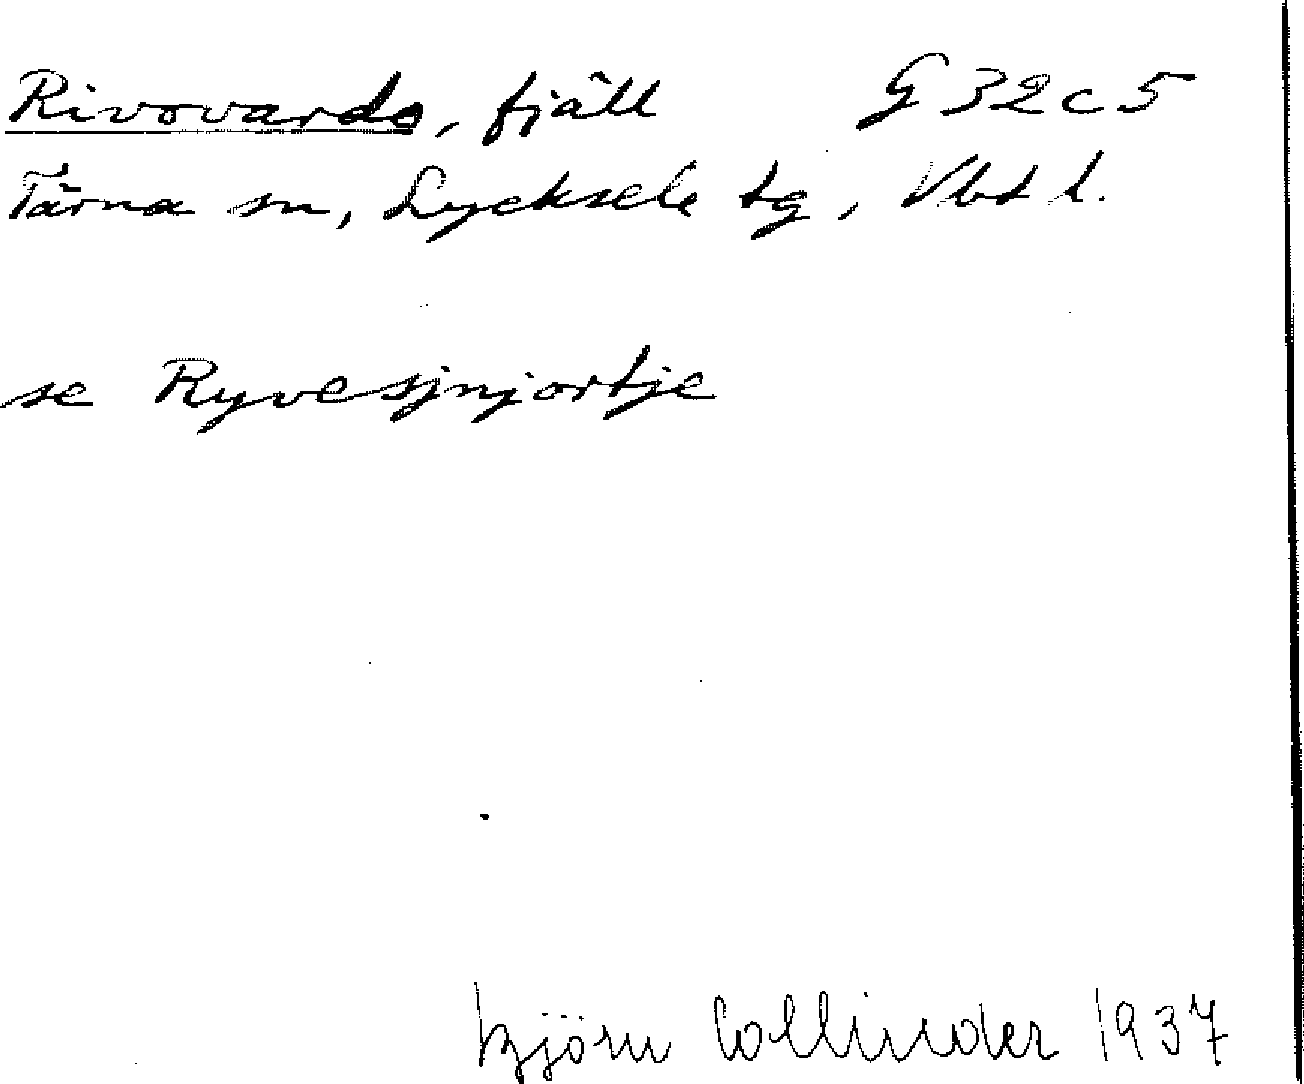 Rivovardo, fjäll G 32 c 5
Tärna sn, Lycksele tg, Vbt l.
se Ryvesjnjortje
Björn Collinder 1937